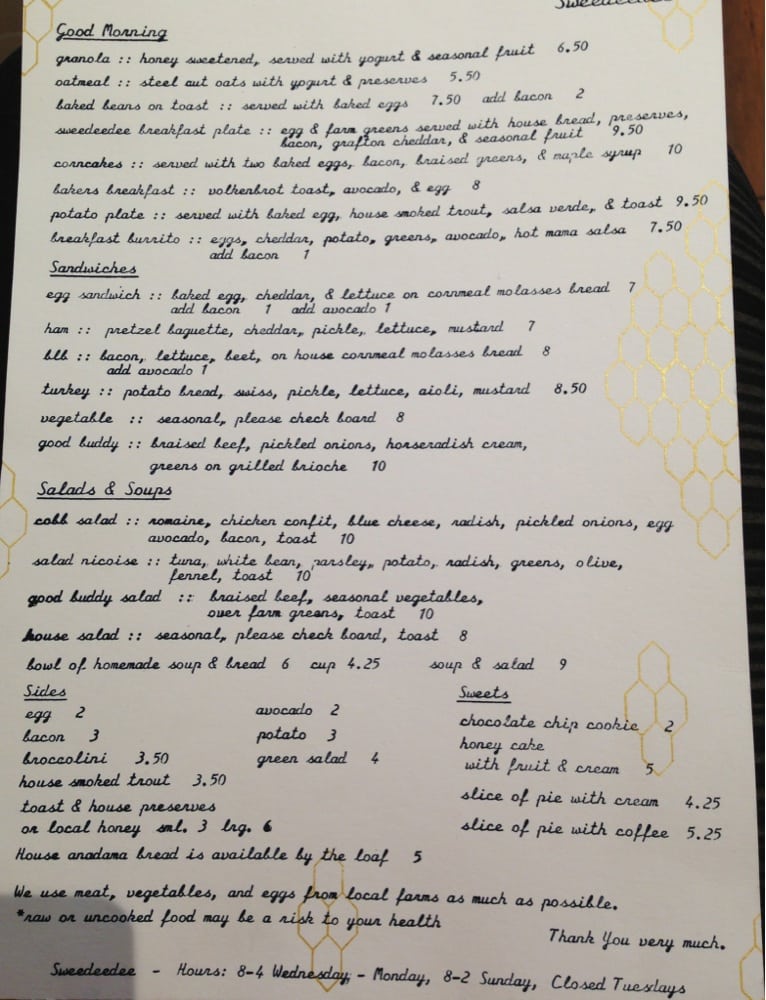 Sweedeedee
Good Morning
granola :: honey sweetened, served with yogurt & seasonal fruit 6.50
oatmeal :: steel cut oats with yogurt & preserves 5.50
baked beans on toast :: served with baked eggs 7.50 add bacon 2
sweedeedee breakfast plate :: egg & farm greens served with house bread, preserves,
bacon, grafton cheddar, & seasonal fruit 9.50
corncakes :: served with two baked eggs, bacon, braised greens, & maple syrup 10
bakers breakfast :: volkenbrot toast, avocado, & egg 8
potato plate :: served with baked egg, house smoked trout, salsa verde, & toast 9.50
breakfast burrito :: eggs, cheddar, potato, greens, avocado, hot mama salsa 7.50
add bacon 1
Sandwiches
egg sandwich :: baked egg, cheddar, & lettuce on cornmeal molasses bread 7
add bacon 1 add avocado 1
ham :: pretzel baguette, cheddar, pickle, lettuce, mustard 7
blb :: bacon, lettuce, beet, on house cornmeal molasses bread 8
add avocado 1
turkey :: potato bread, swiss, pickle, lettuce, aioli, mustard 8.50
vegetable :: seasonal, please check board 8
good buddy :: braised beef, pickled onions, horseradish cream,
greens on grilled brioche 10
Salads & Soups
cobb salad :: romaine, chicken confit, blue cheese, radish, pickled onions, egg
avocado, bacon, toast 10
salad nicoise :: tuna, white bean, parsley, potato, radish, greens, olive,
fennel, toast 10
good buddy salad :: braised beef, seasonal vegetables,
over farm greens, toast 10
house salad :: seasonal, please check board, toast 8
bowl of homemade soup & bread 6 cup 4.25 soup & salad 9
Sides
egg 2
bacon 3
broccolini 3.50
house smoked trout 3.50
toast & house preserves
or local honey sml. 3 lrg. 6
avocado 2
potato 3
green salad 4
Sweets
chocolate chip cookie 2
honey cake
with fruit & cream 5
slice of pie with cream 4.25
slice of pie with coffee 5.25
House anadama bread is available by the loaf 5
We use meat, vegetables, and eggs from local farms as much as possible.
*raw or uncooked food may be a risk to your health
Thank You very much.
Sweedeedee - Hours: 8-4 Wednesday - Monday, 8-2 Sunday, Closed Tuesdays